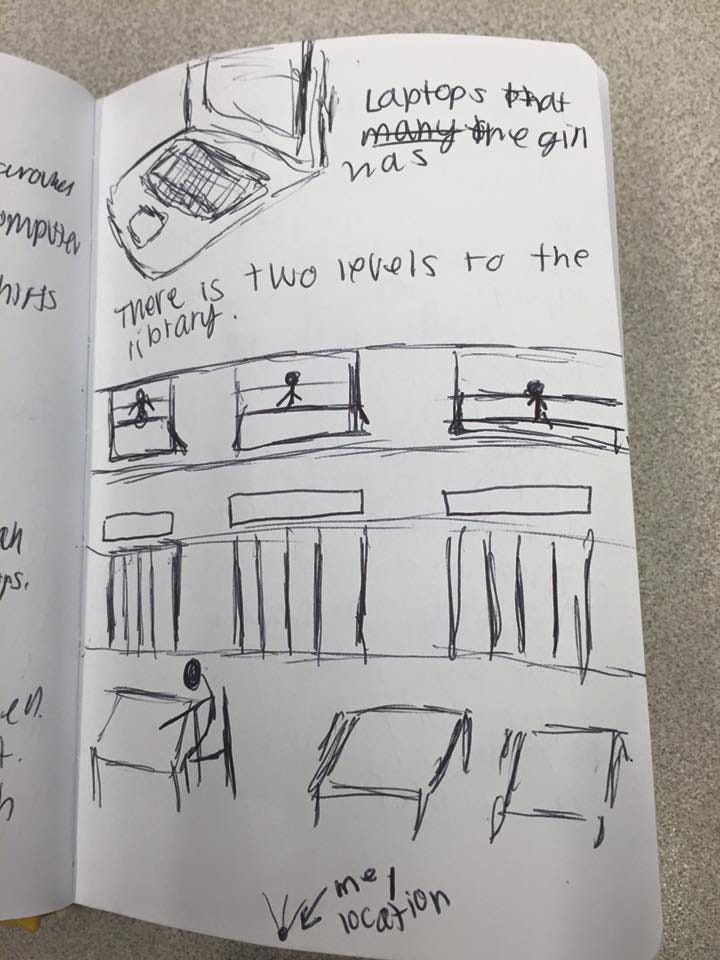 omputer
hirts
Laptops that
many the girl
has
There is two levels to the
library.
me /
location